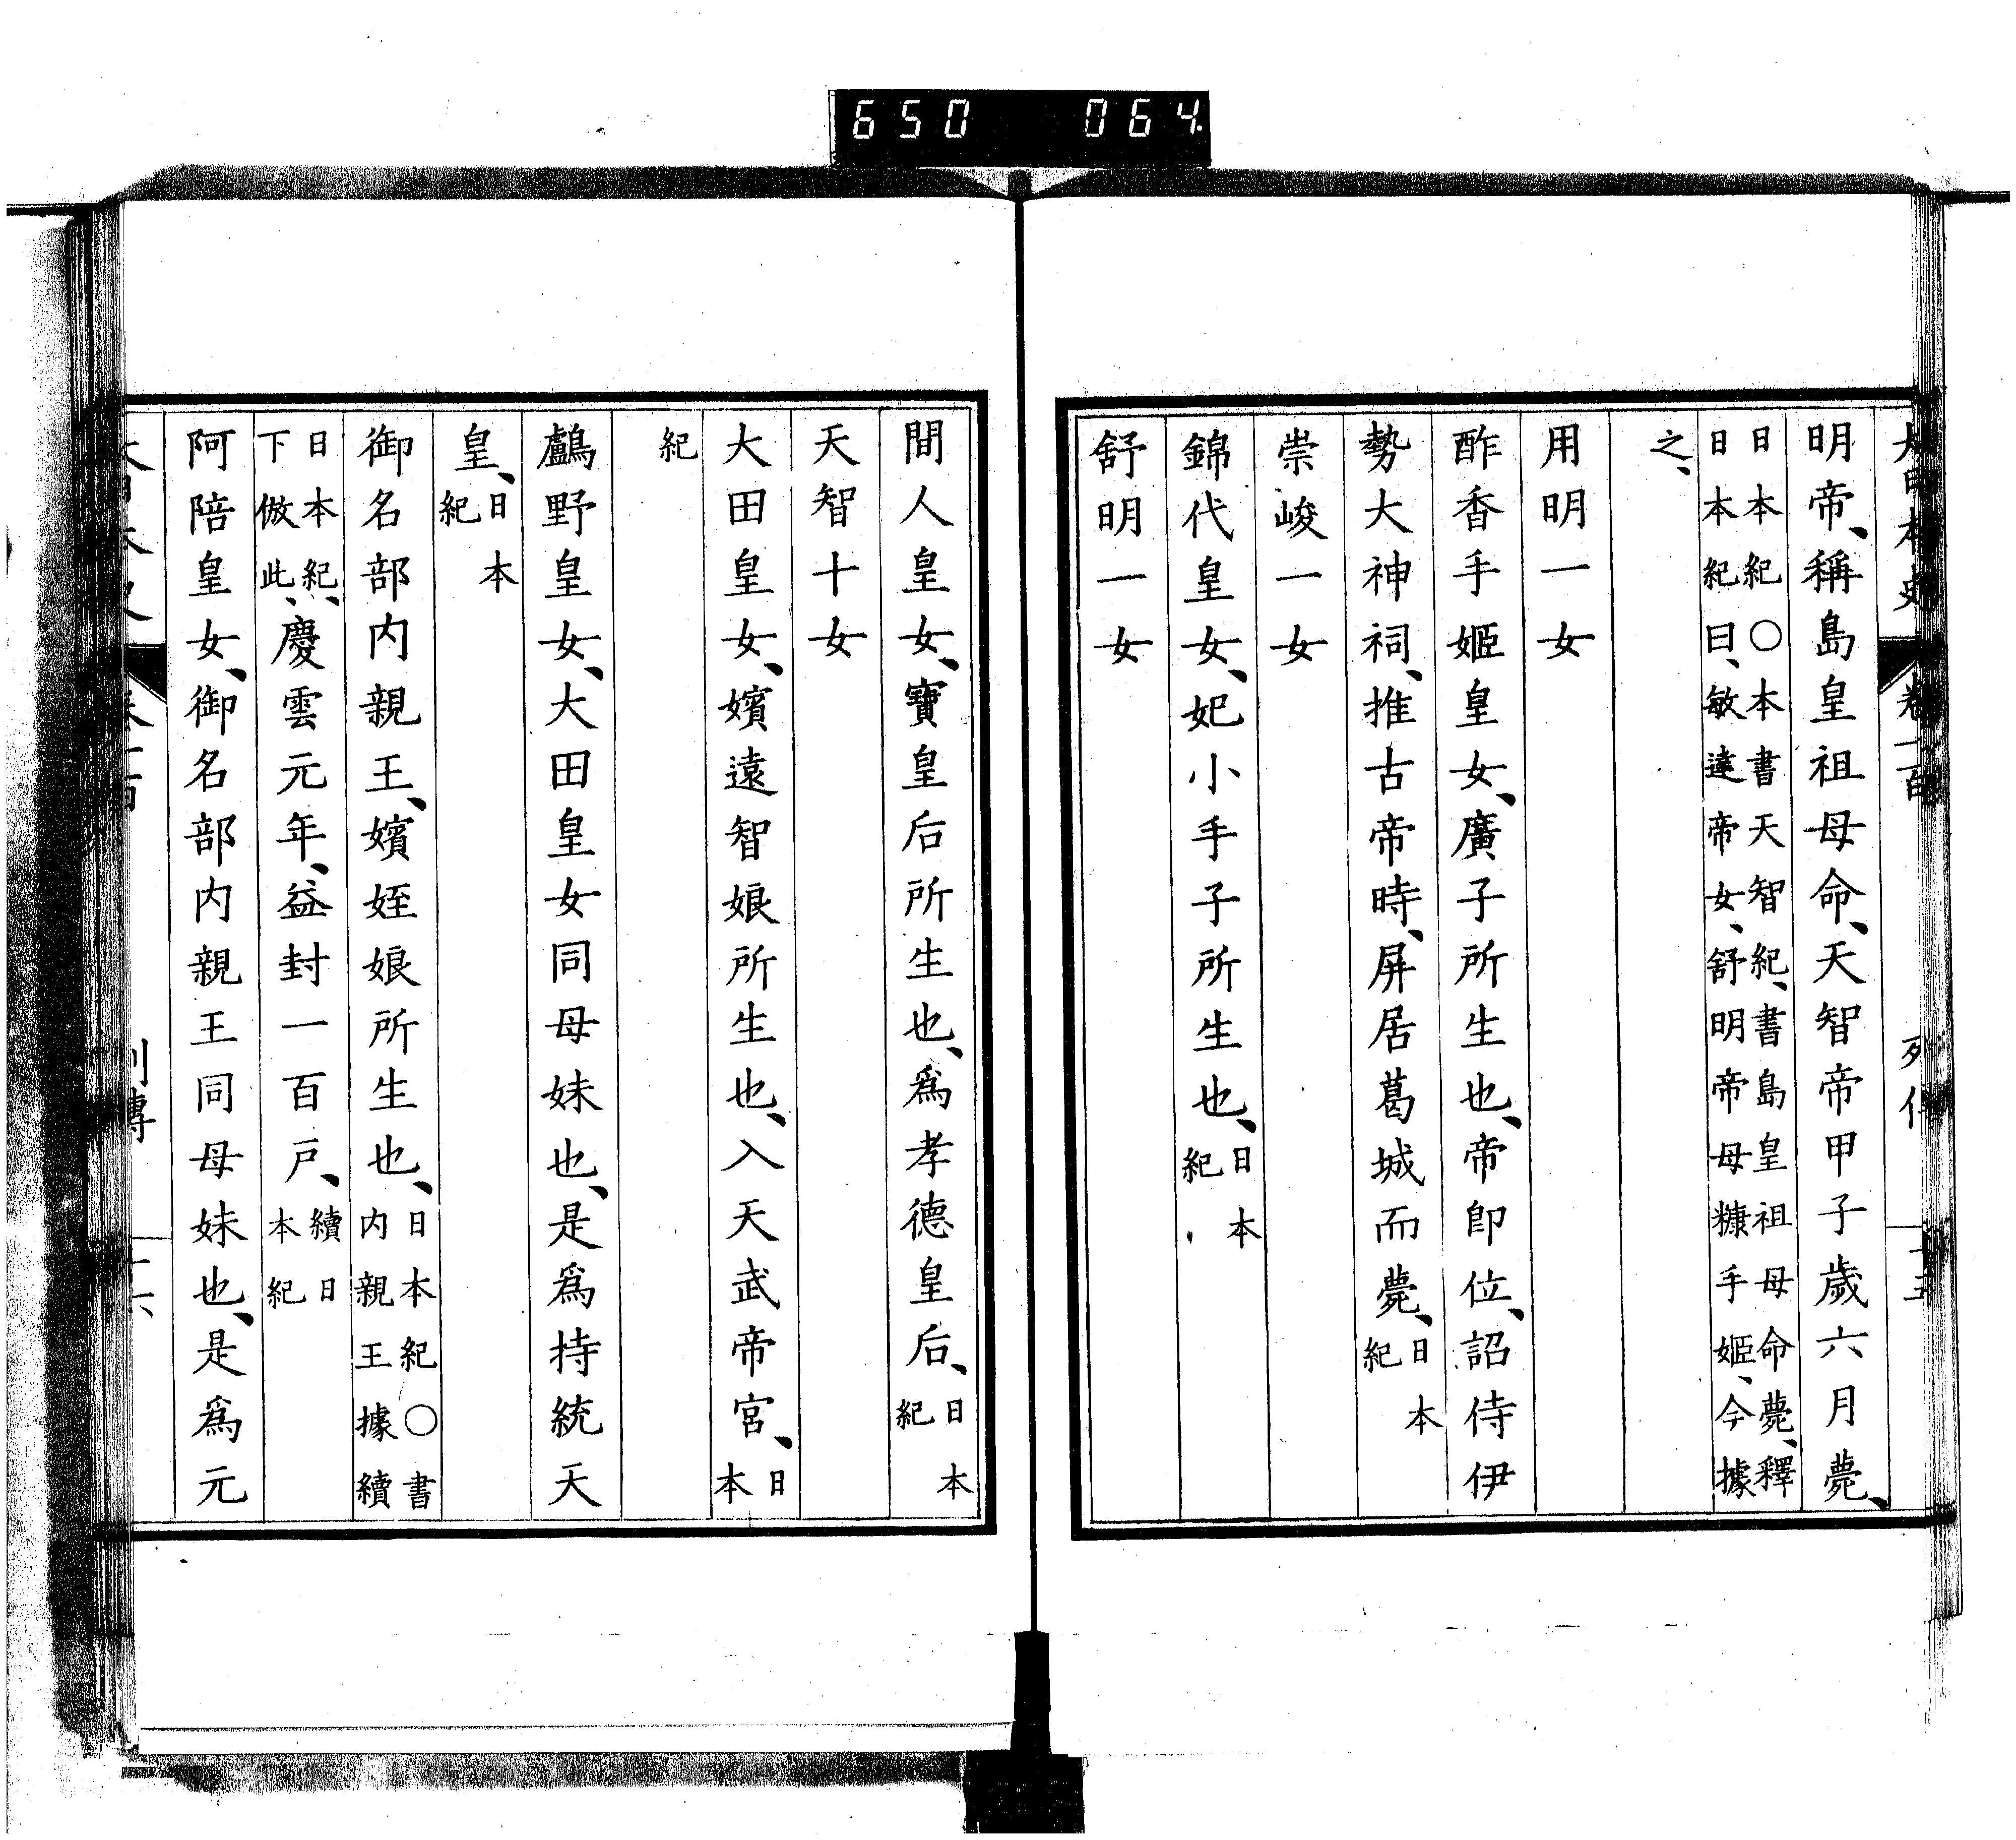 650 064
大日本史 卷一百 列傳 十五
明帝、稱島皇祖母命、天智帝甲子歲六月薨、
日本紀○本書天智紀、書島皇祖母命薨、釋
日本紀曰、敏達帝女、舒明帝母糠手姬、今據
之、
用明一女
酢香手姬皇女、廣子所生也、帝卽位、詔侍伊
勢大神祠、推古帝時、屏居葛城而薨、日本紀
崇峻一女
錦代皇女、妃小手子所生也、日本紀
舒明一女
間人皇女、寶皇后所生也、爲孝德皇后、日本紀
天智十女
大田皇女、嬪遠智娘所生也、入天武帝宮、日本
紀
鸕野皇女、大田皇女同母妹也、是爲持統天
皇、日本紀
御名部內親王、嬪姪娘所生也、日本紀○書
內親王據續
日本紀、
下倣此、慶雲元年、益封一百戶、續日本紀
阿陪皇女、御名部內親王同母妹也、是爲元
列傳